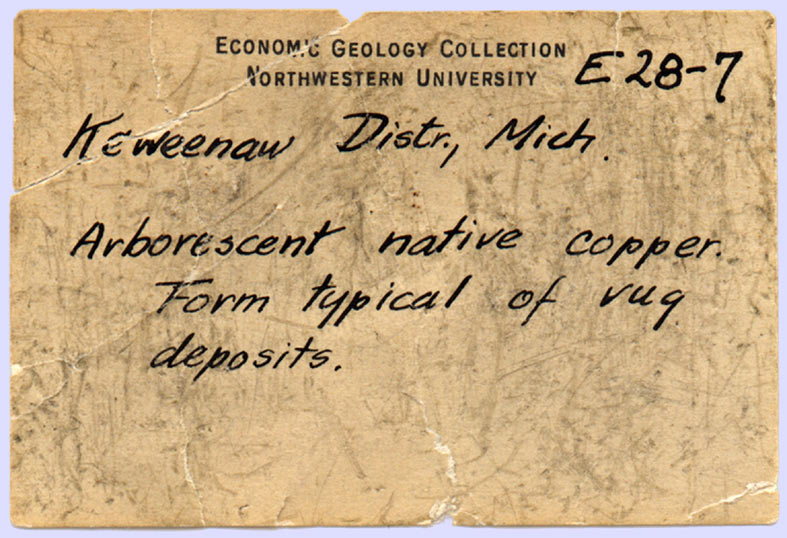 ECONOMIC GEOLOGY COLLECTION
NORTHWESTERN UNIVERSITY E28-7
Keweenaw Distr., Mich.
Arborescent native copper.
Form typical of vug
deposits.